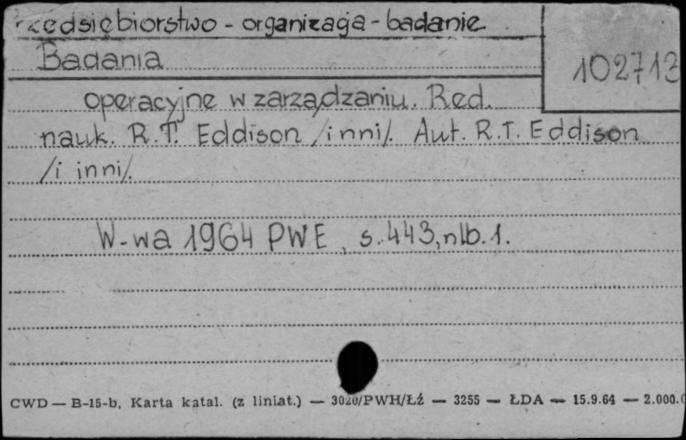 rzedsiębiorstwo - organizacja - badanie
Badania
102713
operacyjne w zarządzaniu. Red.
nauk. R.T. Eddison /i inni/. Aut. R.T. Eddison
/i inni/.
W-wa 1964 PWE, s. 443, nlb. 1.
CWD — B-15-b, Karta katal. (z liniat.) — 3020/PWH/Łź — 3255 — ŁDA — 15.9.64 — 2.000.0